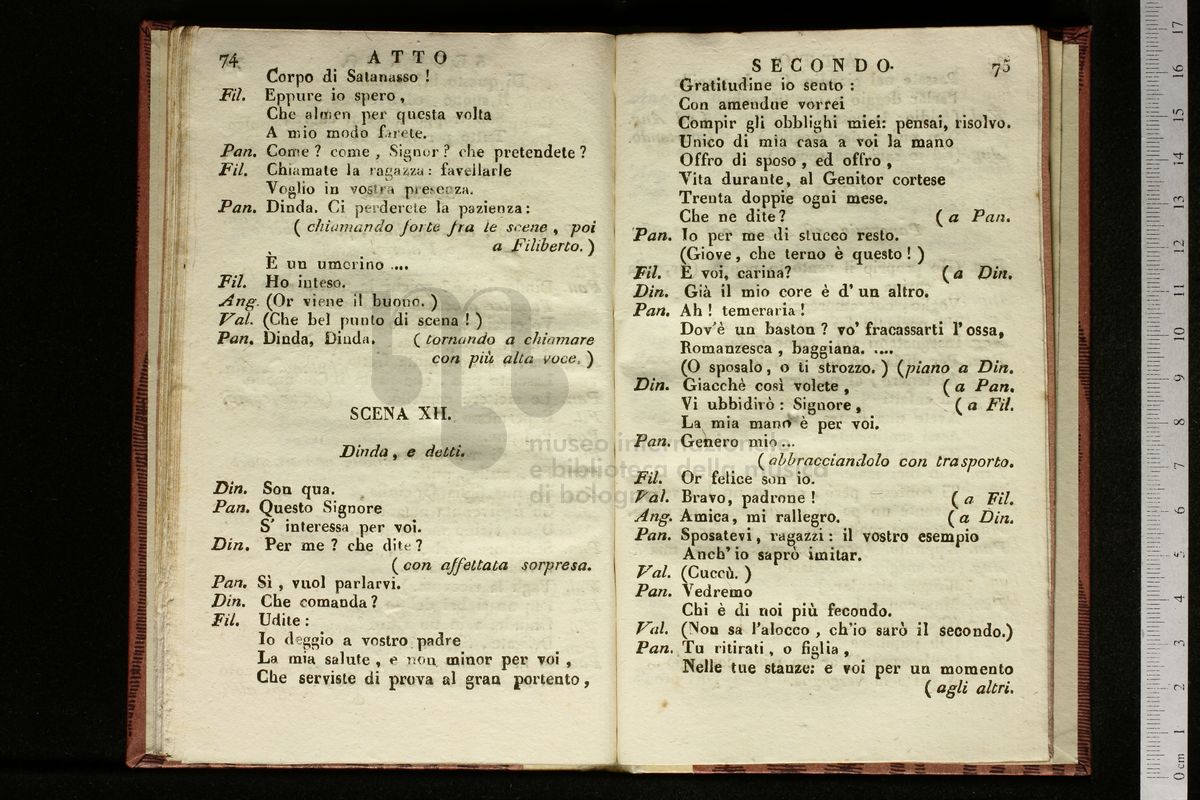 74 ATTO
Corpo di Satanasso !
Fil. Eppure io spero ,
Che almen per questa volta
A mio modo farete.
Pan. Come ? come , Signor ? che pretendete ?
Fil. Chiamate la ragazza : favellarle
Voglio in vostra presenza.
Pan. Dinda. Ci perderete la pazienza :
( chiamando forte fra le scene , poi
a Filiberto. )
È un umorino ....
Fil. Ho inteso.
Ang. (Or viene il buono. )
Val. (Che bel punto di scena ! )
Pan. Dinda, Dinda. ( tornando a chiamare
con più alta voce. )
SCENA XII.
Dinda , e detti.
Din. Son qua.
Pan. Questo Signore
S' interessa per voi.
Din. Per me ? che dite ?
( con affettata sorpresa.
Pan. Sì , vuol parlarvi.
Din. Che comanda ?
Fil. Udite :
Io deggio a vostro padre
La mia salute , e non minor per voi ,
Che serviste di prova al gran portento ,
SECONDO. 75
Gratitudine io sento :
Con amendue vorrei
Compir gli obblighi miei: pensai, risolvo.
Unico di mia casa a voi la mano
Offro di sposo , ed offro ,
Vita durante, al Genitor cortese
Trenta doppie ogni mese.
Che ne dite ? ( a Pan.
Pan. Io per me di stucco resto.
(Giove , che terno è questo ! )
Fil. E voi, carina? ( a Din.
Din. Già il mio core è d' un altro.
Pan. Ah ! temeraria !
Dov'è un baston ? vo' fracassarti l' ossa,
Romanzesca , baggiana. ....
(O sposalo , o ti strozzo. ) (piano a Din.
Din. Giacchè così volete , ( a Pan.
Vi ubbidirò : Signore , ( a Fil.
La mia mano è per voi.
Pan. Genero mio ...
( abbracciandolo con trasporto.
Fil. Or felice son io.
Val. Bravo, padrone ! ( a Fil.
Ang. Amica, mi rallegro. ( a Din.
Pan. Sposatevi , ragazzi : il vostro esempio
Anch' io saprò imitar.
Val. (Cuccù. )
Pan. Vedremo
Chi è di noi più fecondo.
Val. (Non sa l'alocco , ch'io sarò il secondo.)
Pan. Tu ritirati , o figlia ,
Nelle tue stanze: e voi per un momento
( agli altri.
museo internazionale
e biblioteca della musica
di bologna
0 cm 1 2 3 4 5 6 7 8 9 10 11 12 13 14 15 16 17